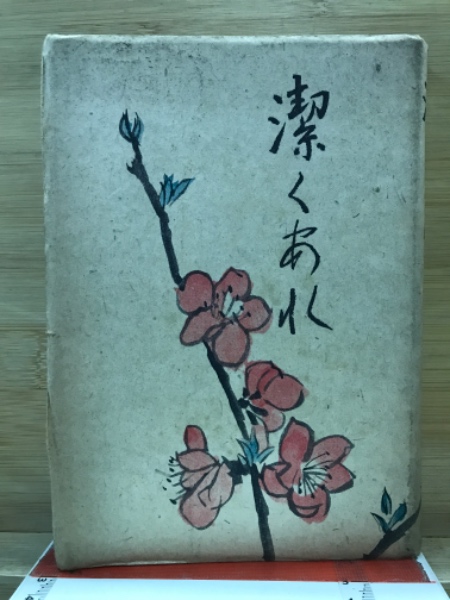 潔くあれ